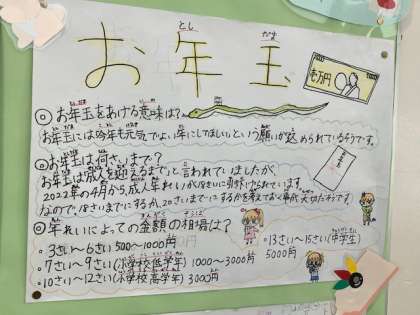 お年玉
とし
だま
壱万円
◎お年玉をあげる意味は?
お年玉には今年も元気でよい年にしてほしいという願いが込められているそうです。
◎お年玉は何さいまで?
お年玉は成人を迎えるまでと言われていましたが、
2022年の4月から成人年れいが18さいに引き下げられています。
なので、18さいまでにするか、20さいまでにするかを考えておく事が大切だそうです。
◎年れいによっての金額の相場は?
・3さい〜6さい 500〜1000円
・7さい〜9さい(小学校低学年) 1000〜3000円
・10さい〜12さい(小学校高学年) 3000円
・13さい〜15さい(中学生)
5000円